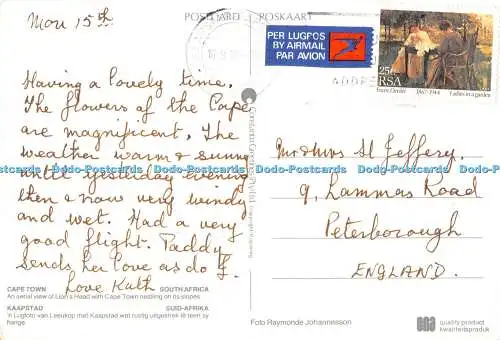 Mon 15th
POSTCARD POSKAART
PER LUGPOS
BY AIRMAIL
PAR AVION
25c
RSA
Frans Oerder 1867-1944 Ladies in a garden
Having a lovely time.
The flowers of the Cape
are magnificent. The
weather warm & sunny
until yesterday evening
then & now very windy
and wet. Had a very
good flight. Paddy
sends her love as do I.
Love Kath
Mr & Mrs H Jeffery.
9, Lammas Road
Peterborough
ENGLAND.
CAPE TOWN SOUTH AFRICA
An aerial view of Lion's Head with Cape Town nestling on its slopes
KAAPSTAD SUID-AFRIKA
'n Lugfoto van Leeukop met Kaapstad wat rustig uitgestrek lê teen sy
hange
Foto Raymonde Johannesson
quality product
kwaliteitsproduk
Dodo-Postcards Dodo-Postcards Dodo-Postcards Dodo-Postcards Dodo-Postcards